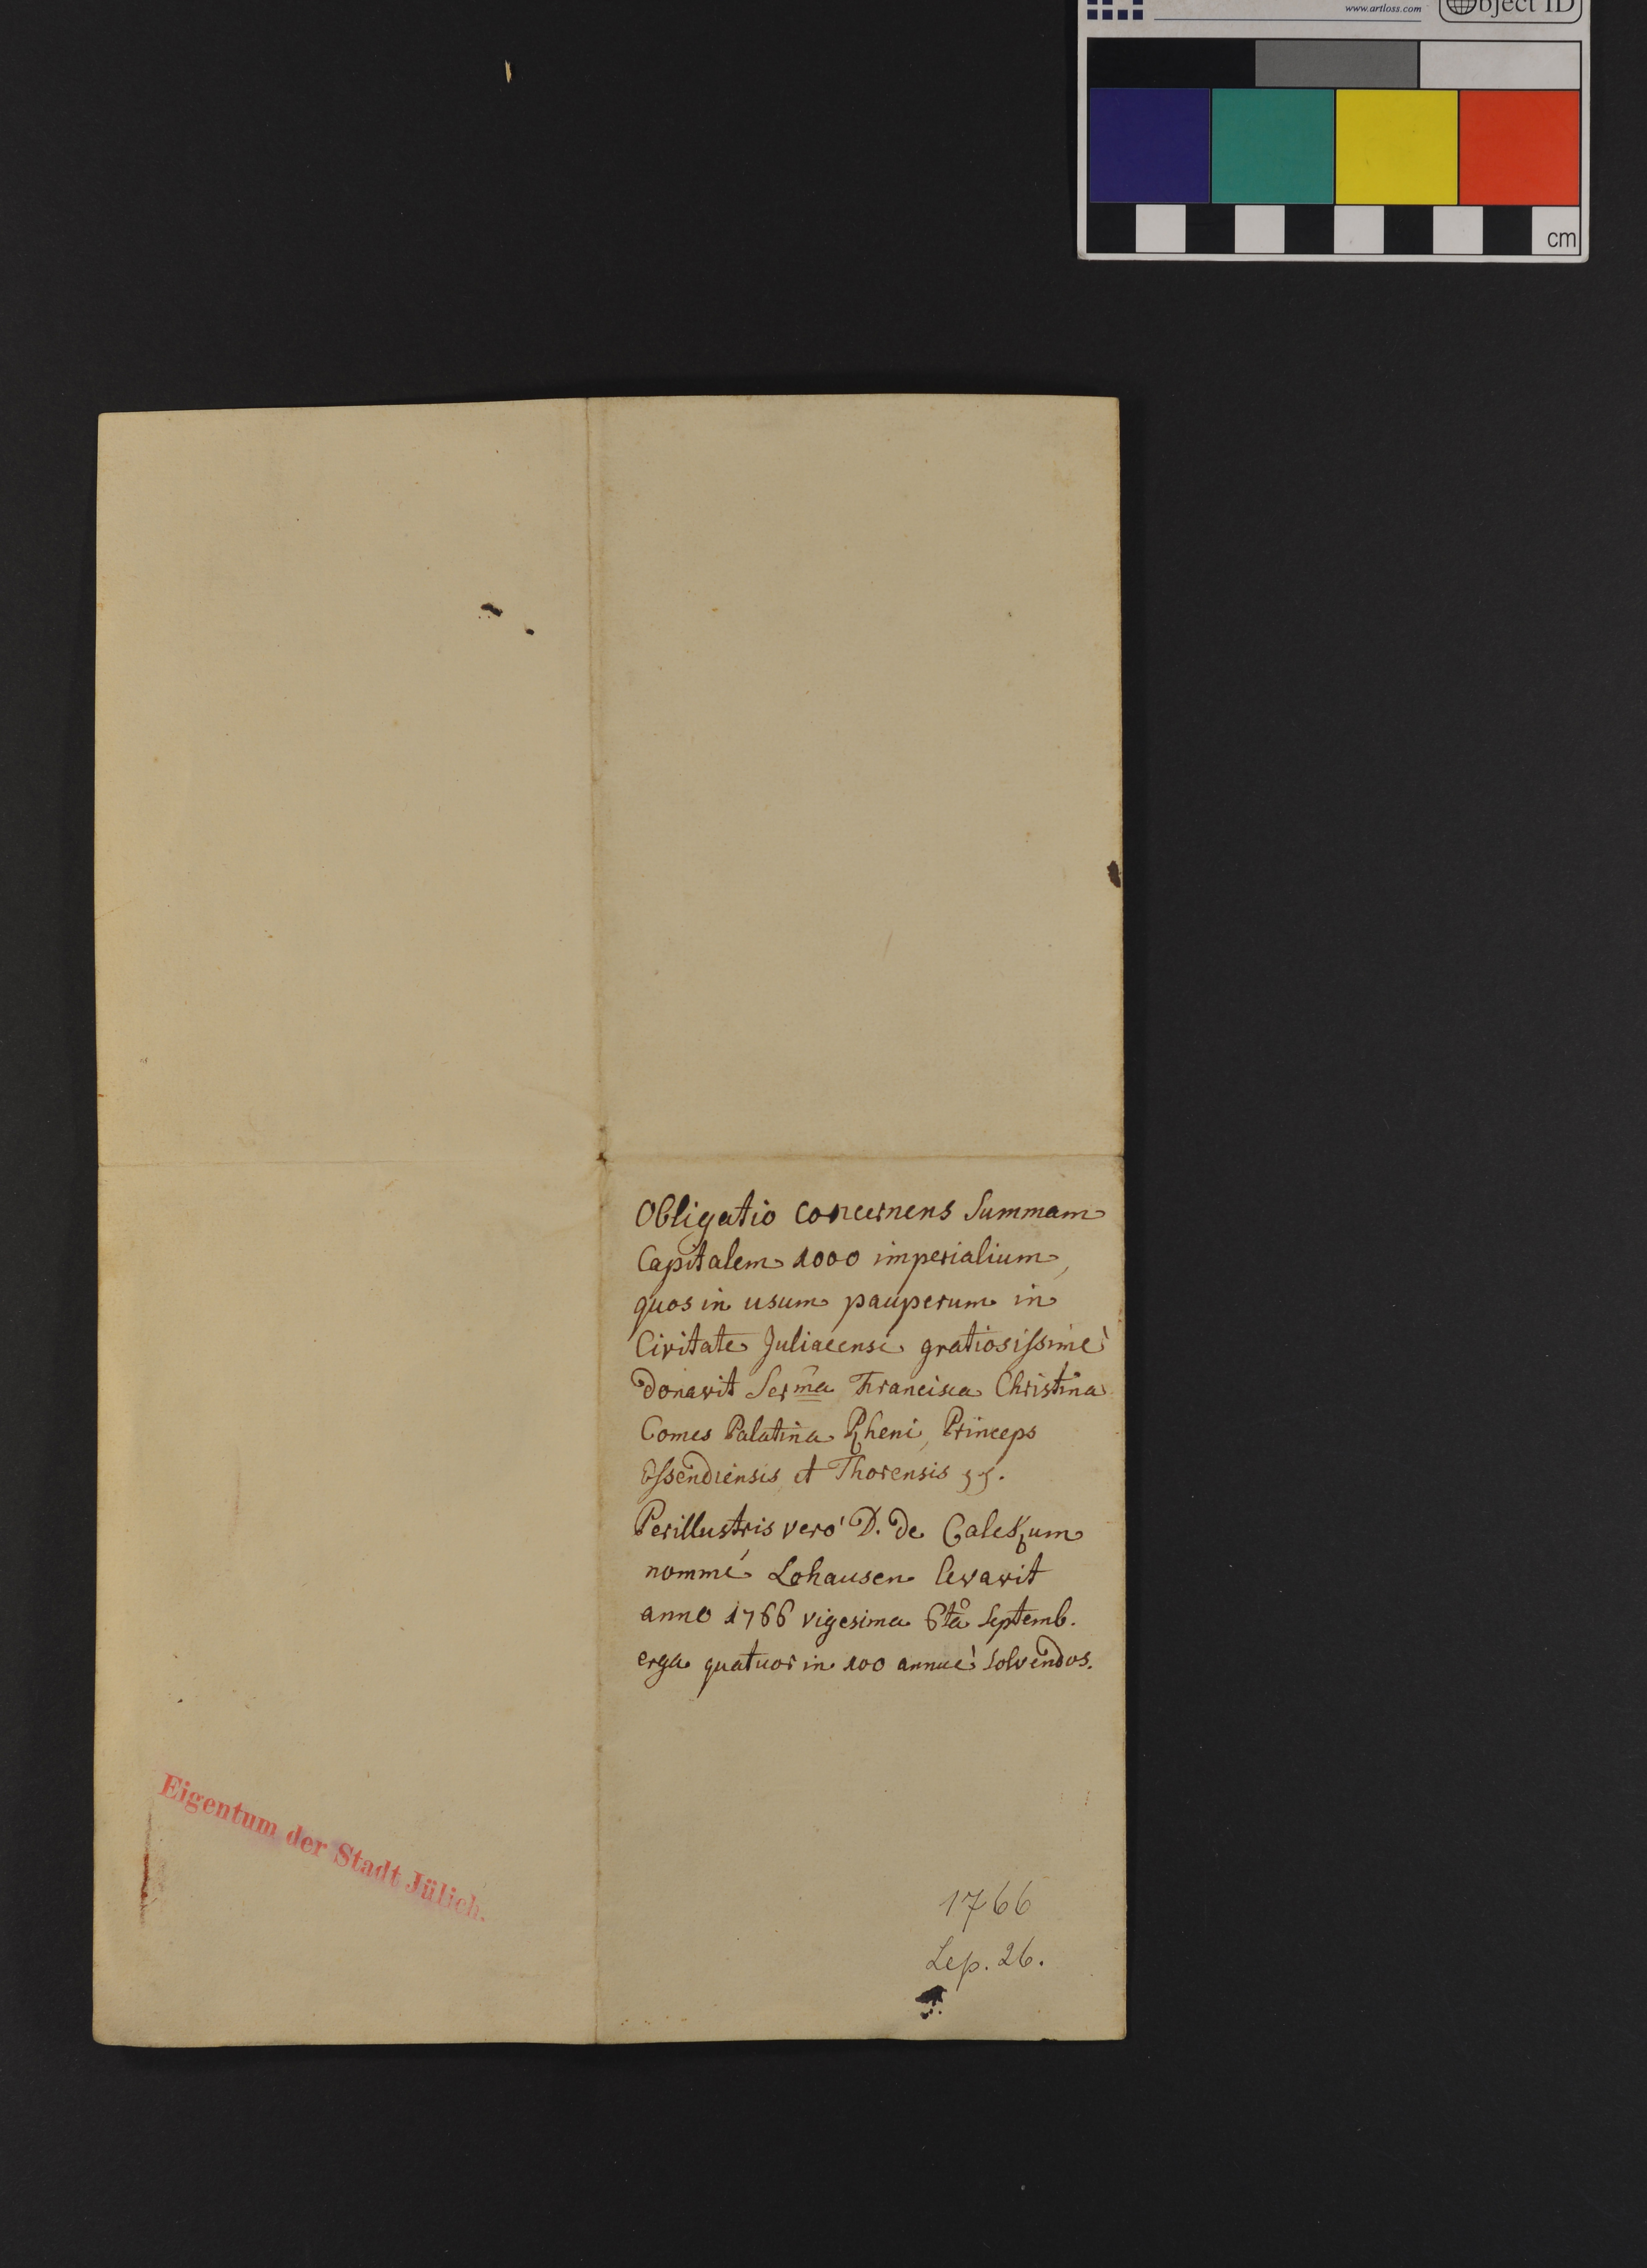 www.artloss.com
Object ID
cm
Obligatio concernens Summam
Capitalem 1000 imperialium,
quos in usum pauperum in
Civitate Juliacensi gratiosissimè
donavit Serma Francisca Christina
Comes Palatina Rheni, Princeps
Essendiensis et Thorensis
Perillustris verò D. de Calckum
nommé Lohausen levavit
anno 1766 vigesima 6tâ Septemb.
erga quatuor in 100 annuè solvendos.
Eigentum der Stadt Jülich.
1766
Sep. 26.